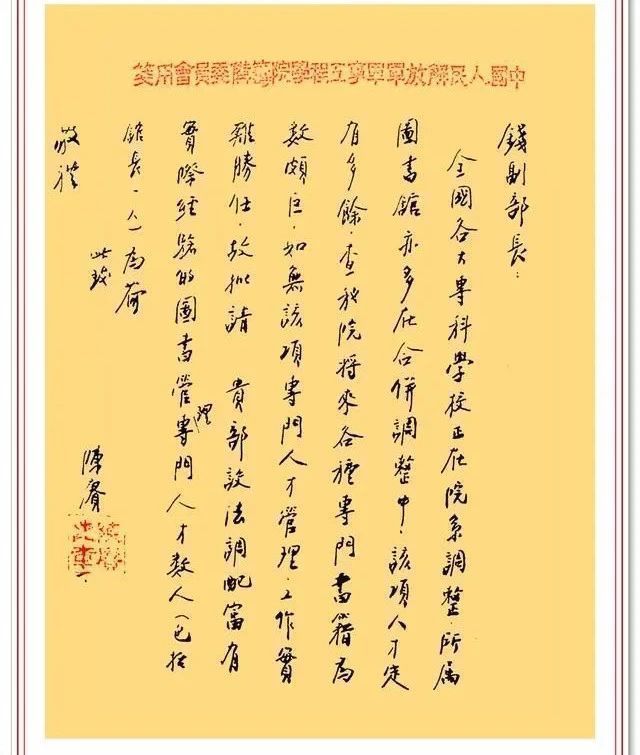 中國人民解放軍軍事工程學院籌備委員會用箋
錢副部長：
全國各大專科學校正在院系調整．所屬
圖書館亦多在合併調整中．該項人才定
有多餘．查我院將來各種專門書籍為
數頗巨．如無該項專門人才管理．工作實
難勝任．故擬請 貴部設法調配富有
實際經驗的圖書管理專門人才數人（包括
館長一人）為荷
此致
敬禮
陳賡